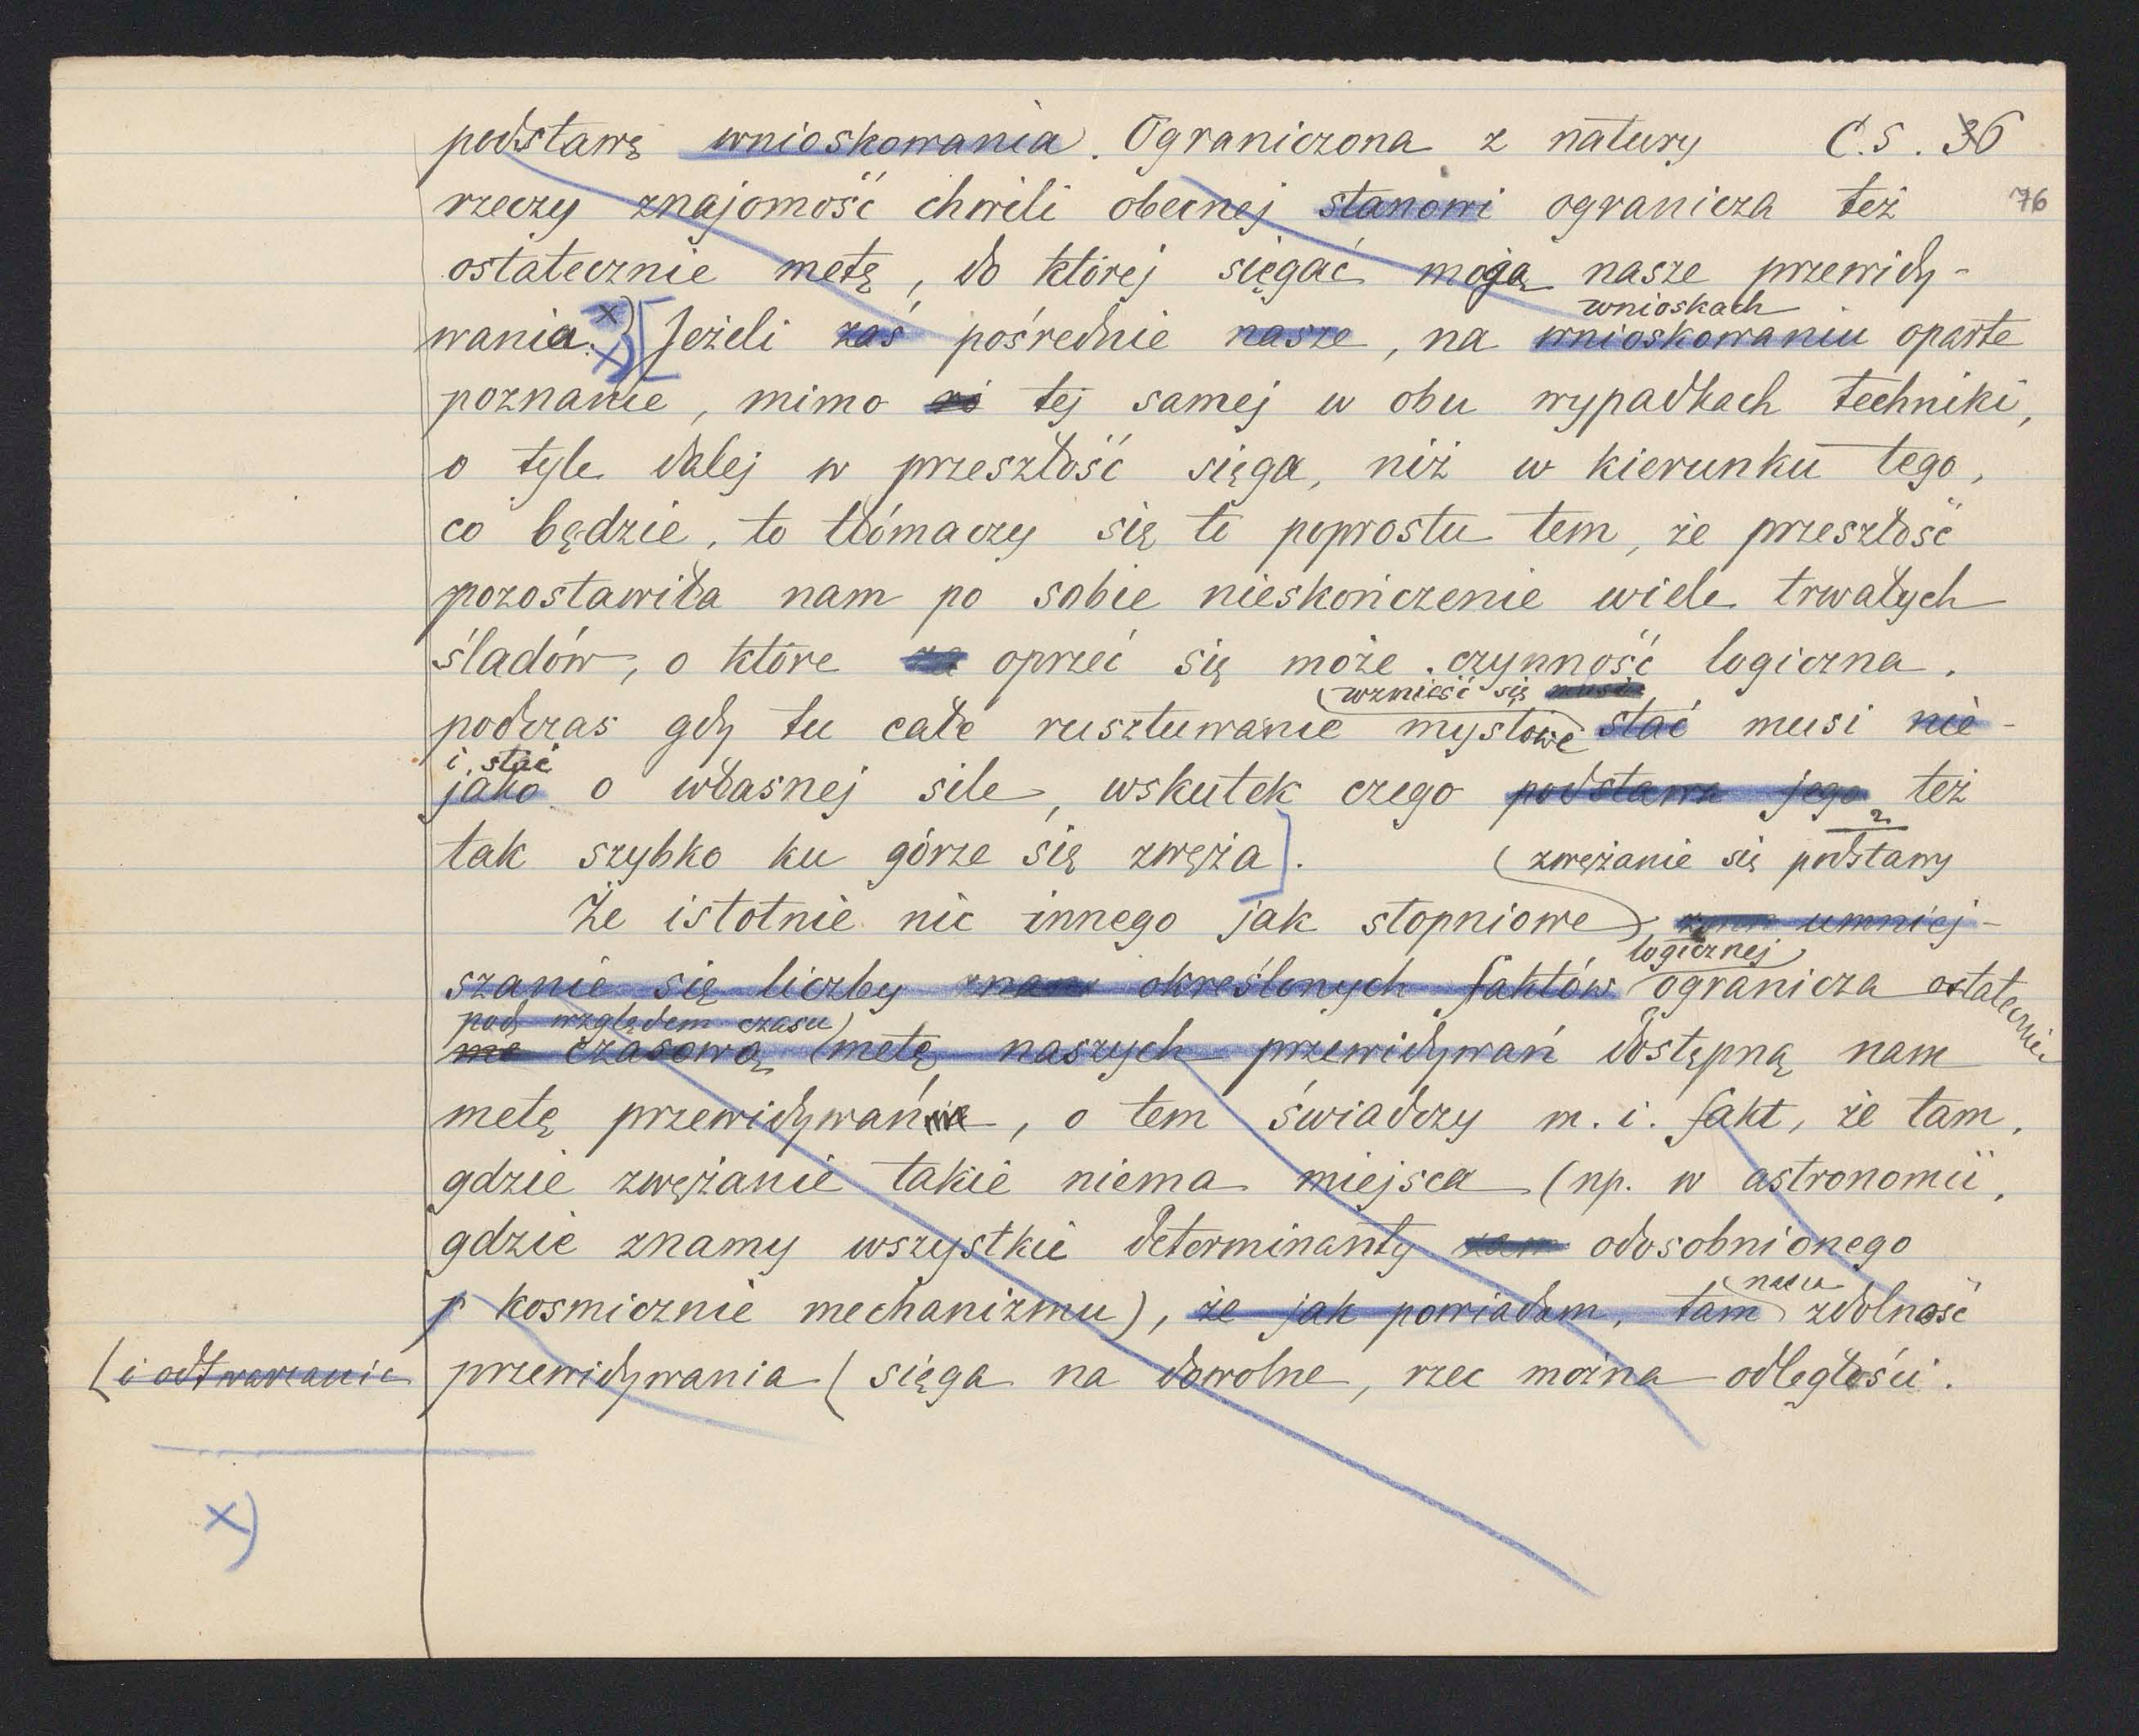 podstawę wnioskowania. Ograniczona z natury C.S. 36
76
rzeczy znajomość chwili obecnej stanowi ogranicza też
ostatecznie metę, do której sięgać mogą nasze przewidy-
wania. x) x) [Jeżeli zaś pośrednie nasze, na wnioskowaniu oparte
wnioskach
poznanie, mimo tej samej w obu wypadkach techniki,
o tyle dalej w przeszłość sięga, niż w kierunku tego,
co będzie, to tłómaczy się to poprostu tem, że przeszłość
pozostawiła nam po sobie nieskończenie wiele trwałych
śladów, o które za oprzeć się może czynność logiczna,
(wznieść się musi
podczas gdy tu całe rusztowanie mysłowe stać musi nie-
i stać
jako o własnej sile, wskutek czego podstawa jego też
tak szybko ku górze się zwęża]. (zwężanie się podstawy
Że istotnie nic innego jak stopniowe umniej-
logicznej
szanie się liczby znane określonych faktów ogranicza ostatecznie
pod względem czasu)
me czasową (metę naszych przewidywań dostępną nam
metę przewidywań, o tem świadczy m. i. fakt, że tam,
gdzie zwężanie takie niema miejsca (np. w astronomii,
gdzie znamy wszystkie determinanty odosobnionego
kosmicznie mechanizmu), że jak powiadam, tam zdolność
nasza
(i odtwarzanie przewidywania (sięga na dowolne, rzec można odległości.
x)